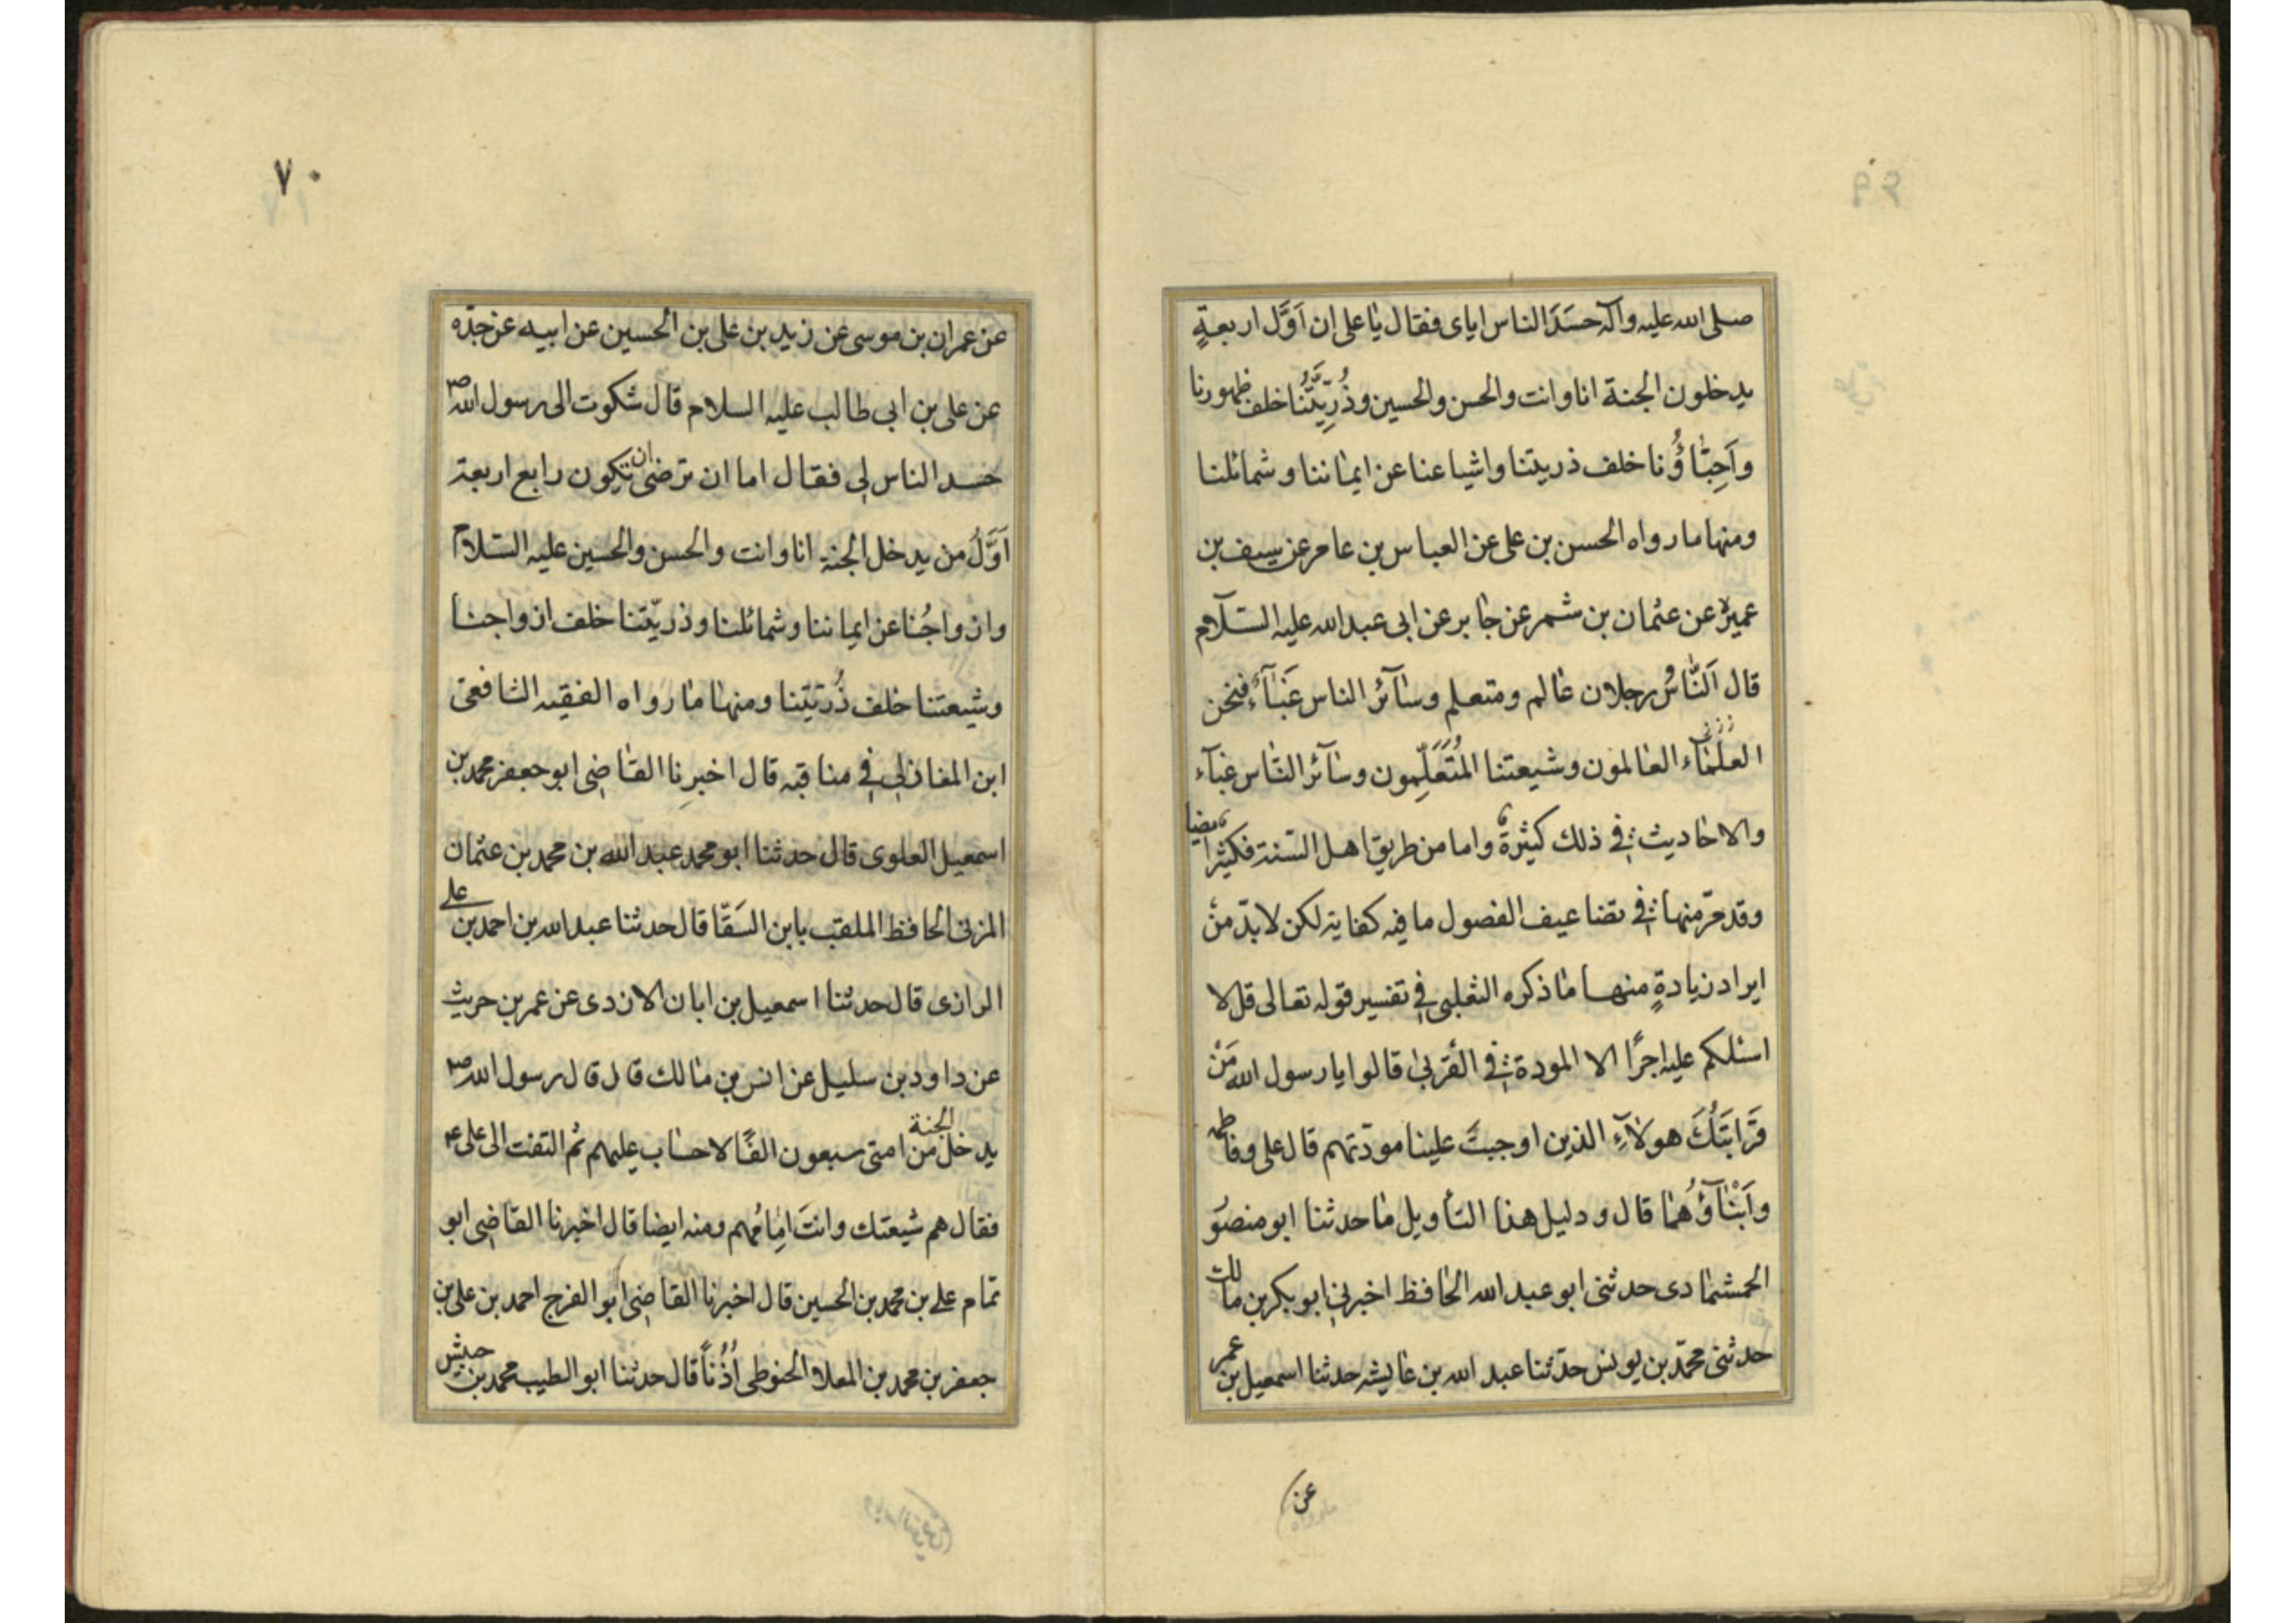 صلى الله عليه وآله حسَدَ الناس اياى فقال يا على ان اَوَّل اربعةٍ
يدخلون الجنة انا وانت والحسن والحسين وذُرِّيَّتُنا خلف ظهورنا
واَحِبّاؤُنا خلف ذريتنا واشياعنا عن ايماننا وشمائلنا
ومنها ما رواه الحسن بن على عن العباس بن عامر عن سيف بن
عميرة عن عثمان بن شمر عن جابر عن ابى عبد الله عليه السلام
قال اَلنّاسُ رجلان عالم ومتعلم وسآئر الناس غثآءٌ فنحن
العُلَمآء العالمون وشيعتنا المُتَعَلِّمون وسآئر النّاس غثآء
والاحاديث فى ذلك كثيرةٌ واما من طريق اهل السّنة فكثير ايضا
وقد مرّ منها فى تضاعيف الفصول ما فيه كفاية لكن لا بدّ من
ايراد زيادةٍ منها ما ذكره الثعلبى فى تفسير قوله تعالى قل لا
اسئلكم عليه اجرًا الا المودة فى القربى قالوا يا رسول الله مَنْ
قَرَابَتُكَ هولآءِ الذين اوجبتَ علينا مودّتهم قال على وفاطمه
واَبْنآؤُهُما قال ودليل هذا التأويل ما حدثنا ابو منصور
الحمشادى حدثنى ابو عبد الله الحافظ اخبرنى ابو بكر بن مالك
حدثنى محمّد بن يونس حدّثنا عبد الله بن عايشه حدثنا اسمعيل بن عمر
عن
٧٠
عن عمران بن موسى عن زيد بن على بن الحسين عن ابيه عن جدّه
عن على بن ابى طالب عليه السلام قال شكوت الى رسول الله ص
حسد الناس لى فقال اما ان ترضى ان تكون رابع اربعة
اَوَّلُ من يدخل الجنة انا وانت والحسن والحسين عليه السّلام
وازواجُنا عن ايماننا وشمائلنا وذريّتنا خلف ازواجنا
وشيعتنا خلف ذُريّتنا ومنها ما رواه الفقيه الشافعى
ابن المغازلى فى مناقبه قال اخبرنا القاضى ابو جعفر محمد بن
اسمعيل العلوى قال حدثنا ابو محمد عبد الله بن محمد بن عثمان
المزنى الحافظ الملقب بابن السَقّا قال حدثنا عبد الله بن احمد بن على
الرازى قال حدثنا اسمعيل بن ابان الازدى عن عمر بن حريث
عن داود بن سليل عن انس بن مالك قال قال رسول الله ص
يدخل الجنة من امتى سبعون الفًا لا حساب عليهم ثم التفت الى على ع
فقال هم شيعتك وانتَ اِمامُهم ومنه ايضا قال اخبرنا القاضى ابو
تمام على بن محمد بن الحسين قال اخبرنا القاضى ابو الفرج احمد بن على بن
جعفر بن محمد بن المعلا الحنوطى اُذُنًا قال حدثنا ابو الطيب محمد بن حبيش